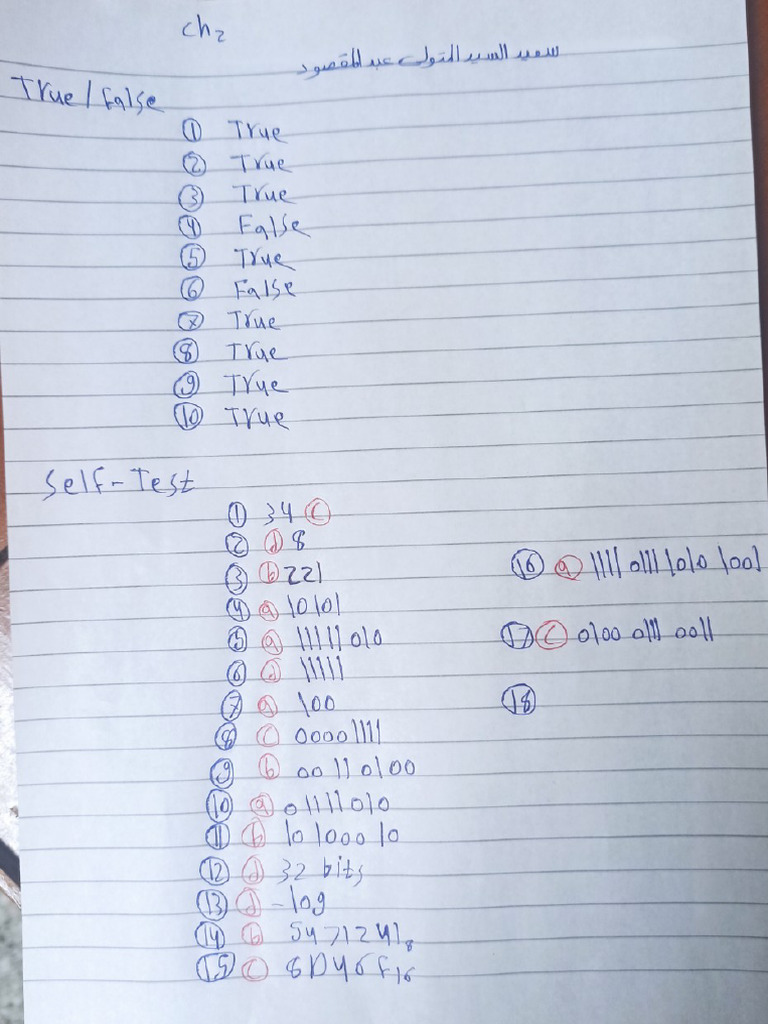 ch2
سعيد السيد المتولى عبد المقصود
True/False
① True
② True
③ True
④ False
⑤ True
⑥ False
⑦ True
⑧ True
⑨ True
⑩ True
Self-Test
① 34 ⓒ
② ⓓ 8
③ ⓑ 221
④ ⓐ 10101
⑤ ⓐ 11111010
⑥ ⓓ 11111
⑦ ⓐ 100
⑧ ⓒ 00001111
⑨ ⓑ 00110100
⑩ ⓐ 01111010
⑪ ⓑ 10100010
⑫ ⓓ 32 bits
⑬ ⓓ -109
⑭ ⓑ 5471241₈
⑮ ⓒ 8D46F₁₆
⑯ ⓐ 1111 0111 1010 1001
⑰ ⓒ 0100 0111 0011
⑱